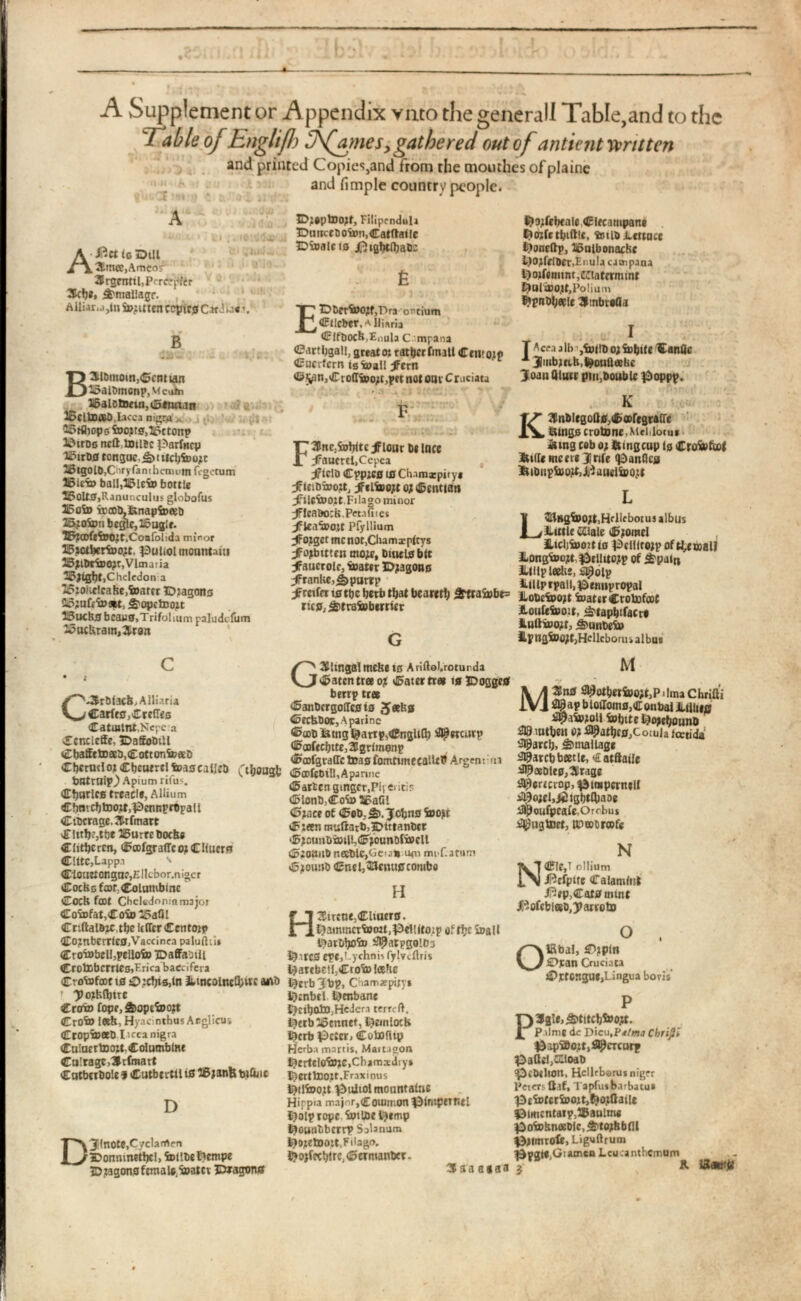 A Supplement or Appendix vnto the generall Table, and to the
Table of English Names, gathered out of antient written
and printed Copies, and from the mouthes of plaine
and simple country people.
A
Anet is Dill
Amee, Ameos
Argentil, Percepier
Ache, Smallage.
B
Baldmoin, Gentian
Baldmony, Meum
Bishops woorts, Betony
Birds nest, wilde Parsnep
Birds tongue, Stitchwoort
Bigold, Chrysanthemum segetum
Blew ball, Blew bottle
Bolts, Ranunculus globosus
Bow weed, Knapweed
Brown begle, Bugle.
Broosewoort, Consolida minor
Brotherwoort, Puliol mountain
Bridewoort, Vlmaria
Bright, Cheledonia
Brokeleake, water Dragons
Brusewoort, Sopewoort
Bucks beans, Trifolium paludosum
Buckram, Aron
C
Cardiack, Alliaria
Carses, Cresses
Catmint, Nepeta
Centleffe, Daffodill
Chaffeweed, Cottonweed
Charles treacle, Allium
Churchwoort, Pennyroyall
Ciderage, Arsmart
Clithe, the Burre Docke
Clitheren, Goosgrasse or Cliuers
Clite, Lappa
Clouetongue, Elleborniger
Cocks foot, Columbine
Cock foot Cheledonia major
Cowfat, Cow Basil
Cristaldre, the lesser Centory
Cornberries, Vaccinea palustris
Crowbell, yellow Daffadill
Crowberries, Erica baccifera
Crowfoot is Orchis, in Lincolneshire and
Yorkshire
Crow sope, Sopewoort
Crow leek, Hyacinthus Anglicus
Cropweed, Iacea nigra
Culuerwoort, Columbine
Culrage, Arsmart
D
Dilnote, Cyclamen
Donninethel, wilde Hempe
Dragons female, water Dragons
Dropwort, Filipendula
Duncedown, Catstaile
Dwale is Nightshade
E
Edderwort, Dracontium
Eileber, Alliaria
Elfdock, Enula Campana
Earthgall, great or rather small Centory
Euerfern is wall Fern
F
Fane, white flour de luce
Fauerel, Cepea
Field Cypres is Chamæpitys
Fieldwoort, Felwoort or Gentian
Filewoort, Filago minor
Fleadock, Petasites
Fleawoort Psyllium
Forget me not, Chamæpitys
Forbitten more, Diuels bit
Fauerole, water Dragons
Franke, Spurry
G
Galingal meke is Aristol. rotunda
Gaten tree or Gater tree is Dogges
berry tree
Gandergosses is
Geckdor, Aparine
Good King Harry, English Mercury
Goosechite, Agrimony
Goosgrasse was somtime called Argentina
Goosebill, Aparine
Garden ginger, Piperitis
Glond, Cow Basil
Grace of God, S. Johns woort
Green mustard, Dittander
Groundwill, Groundswell
Ground needle, Geranium muscatum
Ground Enel, Venus combe
H
Hairene, Cliuers.
Hammerwoort, Pellitory of the wall
Hardhow Marygolds
Hares eye, Lychnis sylvestris
Harebell, Crow leeke
Herb Ivy, Chamæpitys
Henbel, Henbane
Heihow, Hedera terrest.
Herb Bennet, Hemlock
Herb Peter, Cowslip
Herba martis, Martagon
Hertclowre, Chamædrys
Hertwoort, Fraxinus
Hilwoort Puliol mountaine
Hippia major, Common Pimpernel
Holy rope, wilde Hemp
Houndberry Solanum
Horewoort, Filago.
Horsechire, Germander.
Horseheale, Elecampane
Horse thistle, wild Lettuce
Honesty, Bulbonacke
Horselder, Enula campana
Horsemint, Watermint
Hulwort, Polium
Hyndheele Ambrosia
I
Iacea alba, wild or white Tansie
Joan siluer pin, double Poppy.
K
Kandlegostes, Goosegrasse
Kings crowne, Melilotus
King cob or Kingcup is Crowfoot
Kisse me ere I rise Pansies
Kidnywoort, Nauelwoort
L
Langwoort, Helleborus albus
Little Wale Gromel
Lichwort is Pellitory of the wall
Longwort, Pellitory of Spain
Lilly leeke, Moly
Lillyrpall, Pennyroyal
Lobewoort water Crowfoot
Lousewoort, Staphisacre
Lustwoort, Sundew
Lyngwoort, Helleborus albus
M
Mans Motherwoort, Palma Christi
May blossoms, Conval Lillies
Mawroll white Horehound
Mauthen or Mathes, Cotula fœtida
March, Smallage
March beetle, Catstaile
Maebles, Arage
Mercrop, Pimpernell
Morel, Nightshade
Mousepease, Orobus
Mugwet, Woodroofe
N
Nele, Lollium
Nespite Calamint
Nep, Cats mint
Nosebleed, Yarrow
O
Obal, Orpin
Oxan Cruciata
Oxtongue, Lingua bovis
P
Pagle, Stitchwoort.
Palme de Dieu, Palma Christi
Papwoort, Mercury
Pastel, Woad
Pedelion, Helleborus niger
Peters staf, Tapsus barbatus
Pewterwoort, Horstaile
Pimentary, Baulme
Powkneedle, Storkbill
Primrose, Ligustrum
A a a a a a a 3
R